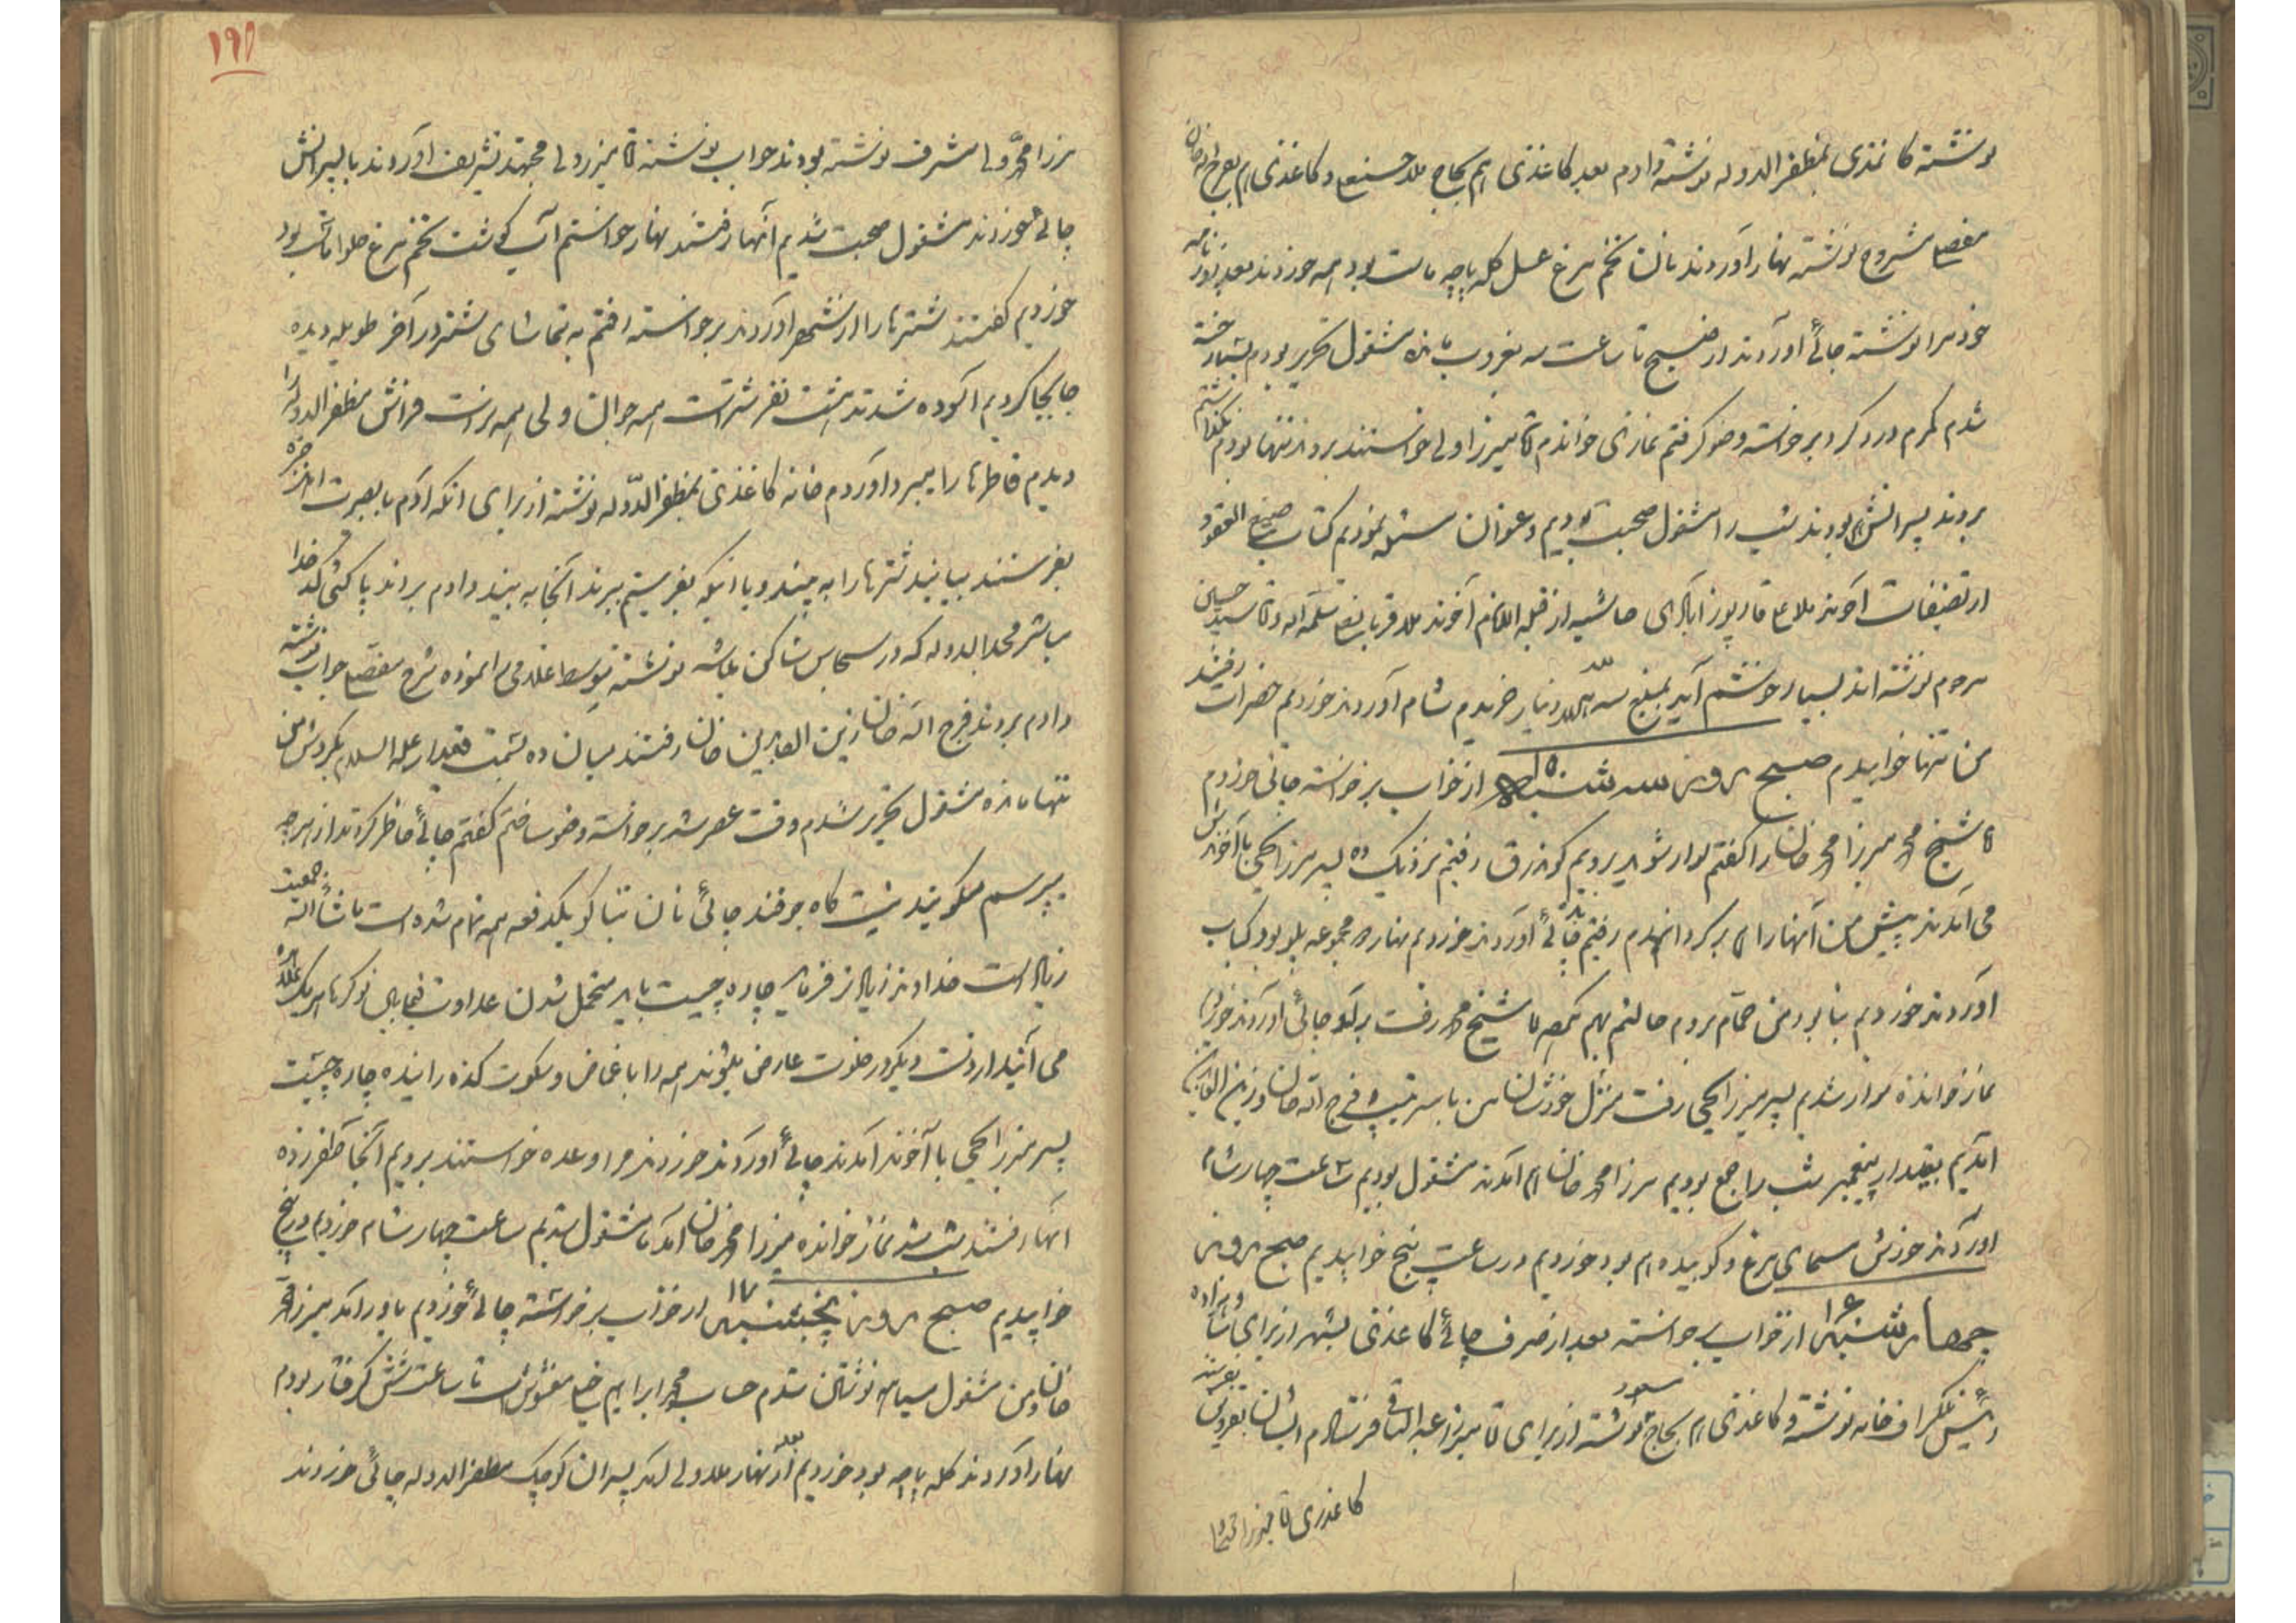 نوشته کاغذی بمظفرالدوله نوشته دادم بعد کاغذی هم بحاج ملا حسنعلی و کاغذی هم بفرج اله خان
مفصل مشروح نوشته نهار آوردند نان تخم مرغ عسل کله پاچه ماست بود همه خوردند بعد روزنامه
خود مرا نوشته چائی آوردند از صبح تا ساعت سه بغروب مانده مشغول تحریر بودم بسیار خسته
شدم کمرم درد کرد برخواسته وضو گرفتم نمازی خواندم آقا میرزا ولی خواستند بردند تنها بودم
بردند پسرانش هم بودند شب را مشغول صحبت بودیم و عنوان مسئله نمودیم کتاب صیغ العقود
از تصنیفات آخوند ملا علی قارپوزآبادی حاشیه از آخوند ملا قربانعلی سلمه اله و آقا سید حسین
مرحوم نوشته اند بسیار خوشم آید بمبلغ سه دینار خریدم شام آوردند خوردیم حضرات رفتند
من تنها خوابیدم صبح روز سه شنبه ۱۵ از خواب برخواسته چائی خوردم
آقا شیخ محمد میرزا محمد خان را گفتم سوار شوید برویم کوندرق رفتیم نزدیک ده پسر میرزا یحیی با آخوندش
می آمدند پیش من آنها را هم برگردانیدم رفتیم چائی آوردند خوردیم نهار مجموعه پلو بود کباب
آوردند خوردیم بنا بود من حمام بروم حالتم بهم آقا شیخ محمد رفت چائی آوردند خوردیم
نماز خوانده سوار شدیم پسر میرزا یحیی رفت منزل خودشان من با سرتیپ و فرج اله خان و زین العابدین
آمدیم بقیدار پیغمبر شب را جمع بودیم میرزا محمد خان هم آمدند مشغول بودیم ساعت چهار شام
آوردند خورش مسمای مرغ و کوبیده هم بود خوردیم در ساعت پنج خوابیدیم صبح روز
چهارشنبه ۱۶ از خواب برخواسته بعد از صرف چائی کاغذی بشهر از برای شاهزاده
رئیس تلگرافخانه نوشته و کاغذی هم بحاج نوشته از برای آقا میرزا عبدالباقی فرستادم ایشان بقزوین بفرستند
کاغذی آقا میرزا
۱۹۱
میرزا محمد ولی مشرف نوشته بودند جواب نوشته آقا میرزا ولی مجتهد تشریف آوردند با پسرانش
چائی خوردند مشغول صحبت شدیم آنها رفتند نهار خواستم آب گوشت تخم مرغ حلوا ماست بود
خوردیم گفتند شترها را از شهر آوردند برخواسته رفتم به تماشای شتر در آخر طویله دیده
جابجا کردیم آسوده شدند هشت نفر شتر است همه جوان ولی همه نر است فراش مظفرالدوله را
دیدم قاطرها را میبرد آوردم خانه کاغذی بمظفرالدوله نوشته از برای آنکه آدم با بصیرت
بفرستند بیایند شترها را به بینند و یا آنکه بفرستیم ببرند آنجا به بیند دادم بردند پاکتی کدخدا
مباشر مجدالدوله که در سجاس ساکن میباشد نوشته توسط نموده شرح مفصل جواب نوشته
دادم بردند فرج اله خان زین العابدین خان رفتند میان ده بسمت قیدار علیه السلام بگردش من
تنها مانده مشغول تحریر شدم وقت عصر شد برخواسته وضو ساختم گفتم چائی حاضر کردند از هر چه
میپرسم میگویند نیست کاه جو قند چائی نان تنباکو یکدفعه همه تمام شده است ماشأاله جمعیت
زیاد است خداوند زیادتر فرماید چاره چیست باید متحمل شدن عداوت فیمابین نوکرها هر یک
می آیند از دست دیگر در خلوت عارض میشوند همه را باغماض و سکوت گذرانیده چاره چیست
پسر میرزا یحیی با آخوند آمدند چائی آوردند خوردند مرا وعده خواستند برویم آنجا
آنها رفتند شب شد نماز خوانده میرزا محمد خان آمد مشغول شدیم ساعت چهار شام خوردیم در پنج
خوابیدیم صبح روز پنجشنبه ۱۷ از خواب برخواسته چائی خوردیم یاور آمد میرزا محمد
خان و من مشغول سیاهه نوشتن شدم حساب محمد ابراهیم خیلی مغشوش است تا ساعت شش گرفتار بودم
نهار آوردند کله پاچه بود خوردیم بعد از نهار ملا ولی آمد پسران کوچک مظفرالدوله چائی خوردند